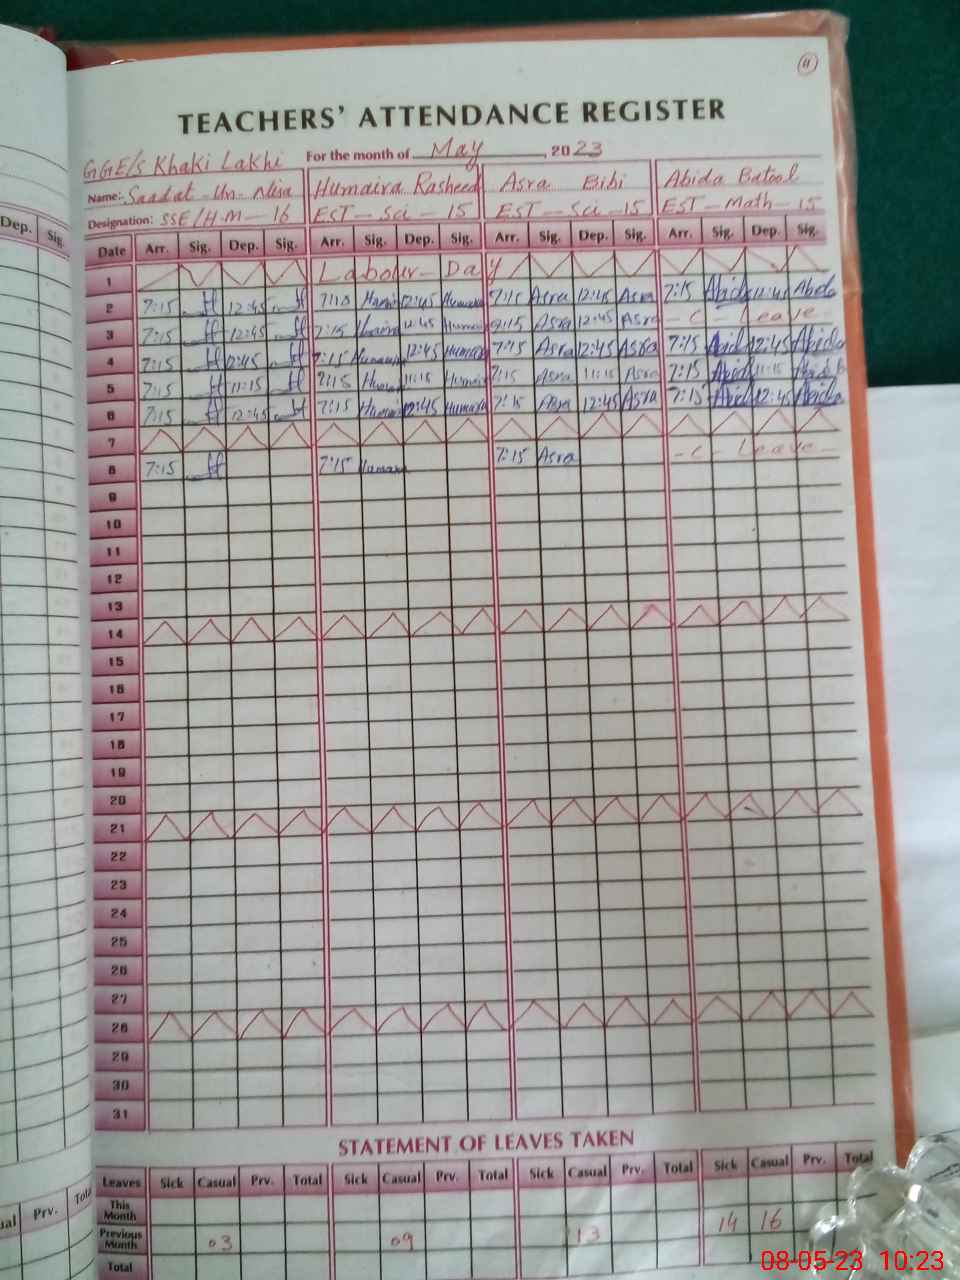 11
TEACHERS' ATTENDANCE REGISTER
GGE/S Khaki Lakhi For the month of May, 2023
Name:- Saadat-Un-Nisa Humaira Rasheed Asra Bibi Abida Batool
Designation: SSE/H.M-16 EST-Sci-15 EST-Sci-15 EST-Math-15
Dep. Sig.
Date Arr. Sig. Dep. Sig. Arr. Sig. Dep. Sig. Arr. Sig. Dep. Sig. Arr. Sig. Dep. Sig.
1 Labour-Day
2 7:15 12:45 7:15 12:45 7:15 Asra 12:45 Asra 7:15 Abida 12:45 Abida
3 7:15 12:45 7:15 12:45 7:15 Asra 12:45 Asra -C- Leave-
4 7:15 12:45 7:15 Humaira 12:45 Humaira 7:15 Asra 12:45 Asra 7:15 Abida 12:45 Abida
5 7:15 11:15 7:15 Humaira 11:15 Humaira 7:15 Asra 11:15 Asra 7:15 Abida 11:15 Abida
6 7:15 12:45 7:15 Humaira 12:45 Humaira 7:15 Asra 12:45 Asra 7:15 Abida 12:45 Abida
7
8 7:15 7:15 Humaira 7:15 Asra -C- Leave-
9
10
11
12
13
14
15
16
17
18
19
20
21
22
23
24
25
26
27
28
29
30
31
STATEMENT OF LEAVES TAKEN
Leaves Sick Casual Prv. Total Sick Casual Prv. Total Sick Casual Prv. Total Sick Casual Prv. Total
This Month
Prv. Total
Previous Month 03 09 13 14 16
Total
08-05-23 10:23